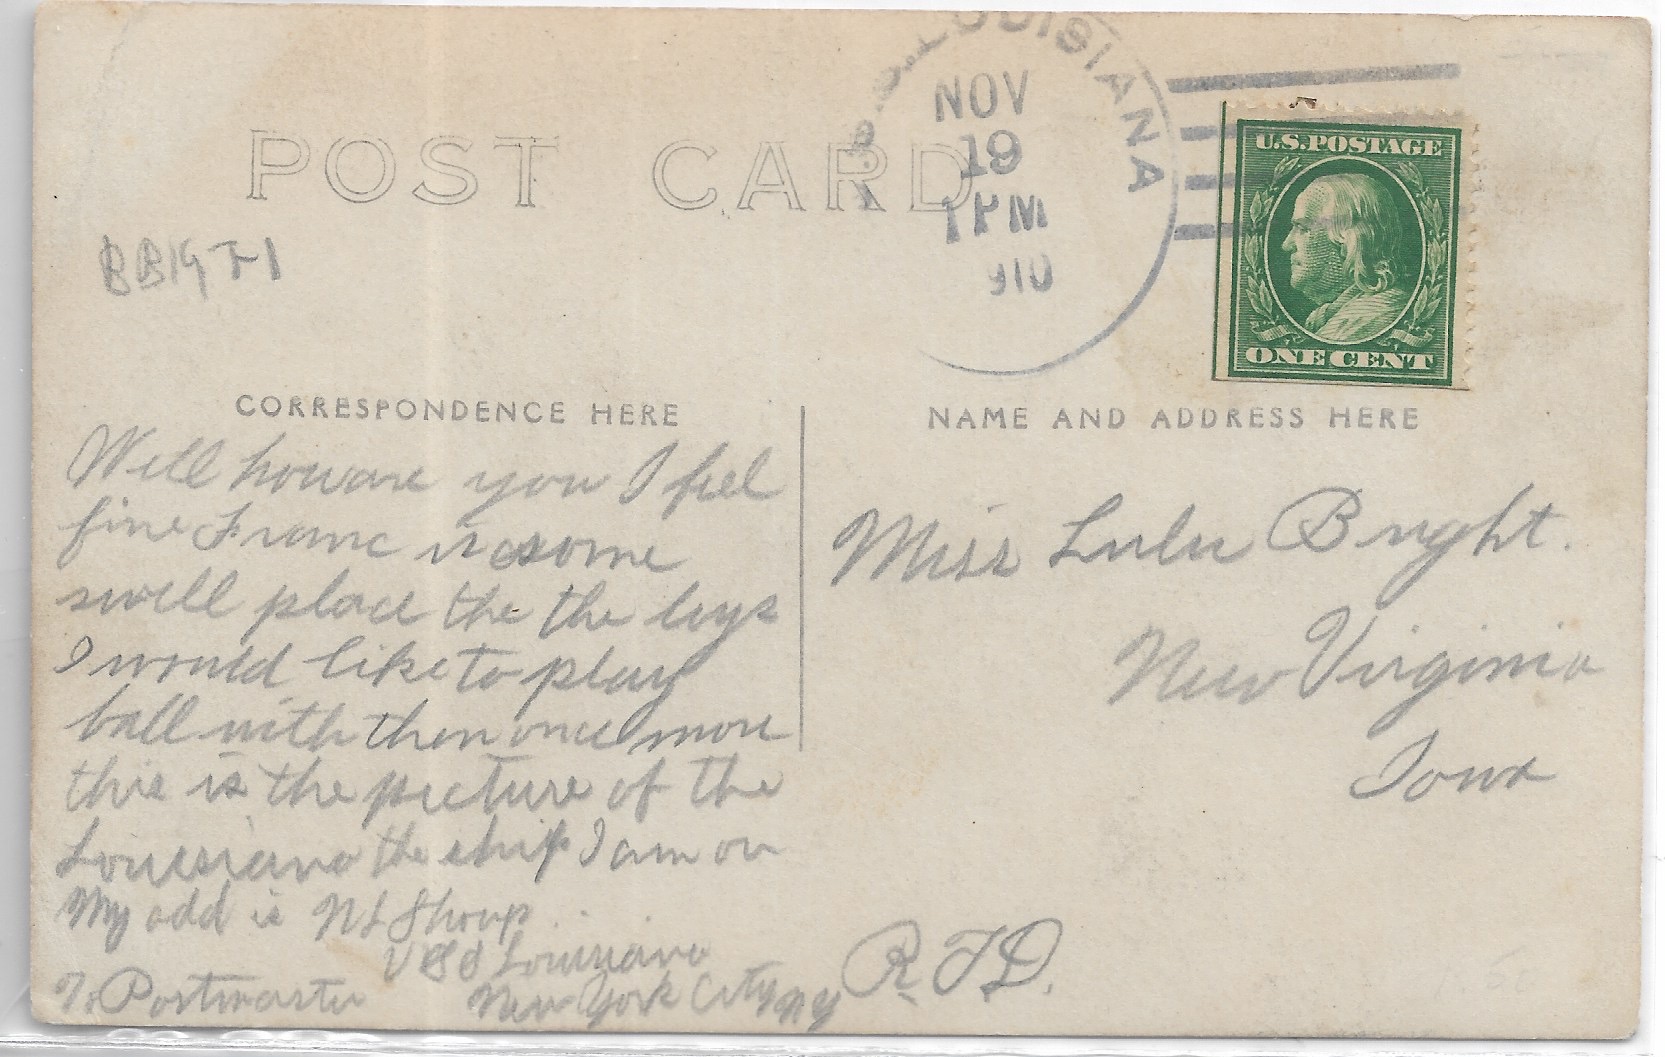 U.S.S. LOUISIANA
NOV
19
1 PM
910
U.S.POSTAGE
ONE CENT
POST CARD
BB19 T-1
CORRESPONDENCE HERE
NAME AND ADDRESS HERE
Well howare you I feel
fine Franc is some
swell place the the boys
I would like to play
ball with then once more
this is the picture of the
Louissiana the ship I am on
My add is N L Shoup
U S S Louissiana
Postmaster New York City NY
Miss Lulu Bright.
New Virginia
Iowa
R.F.D.